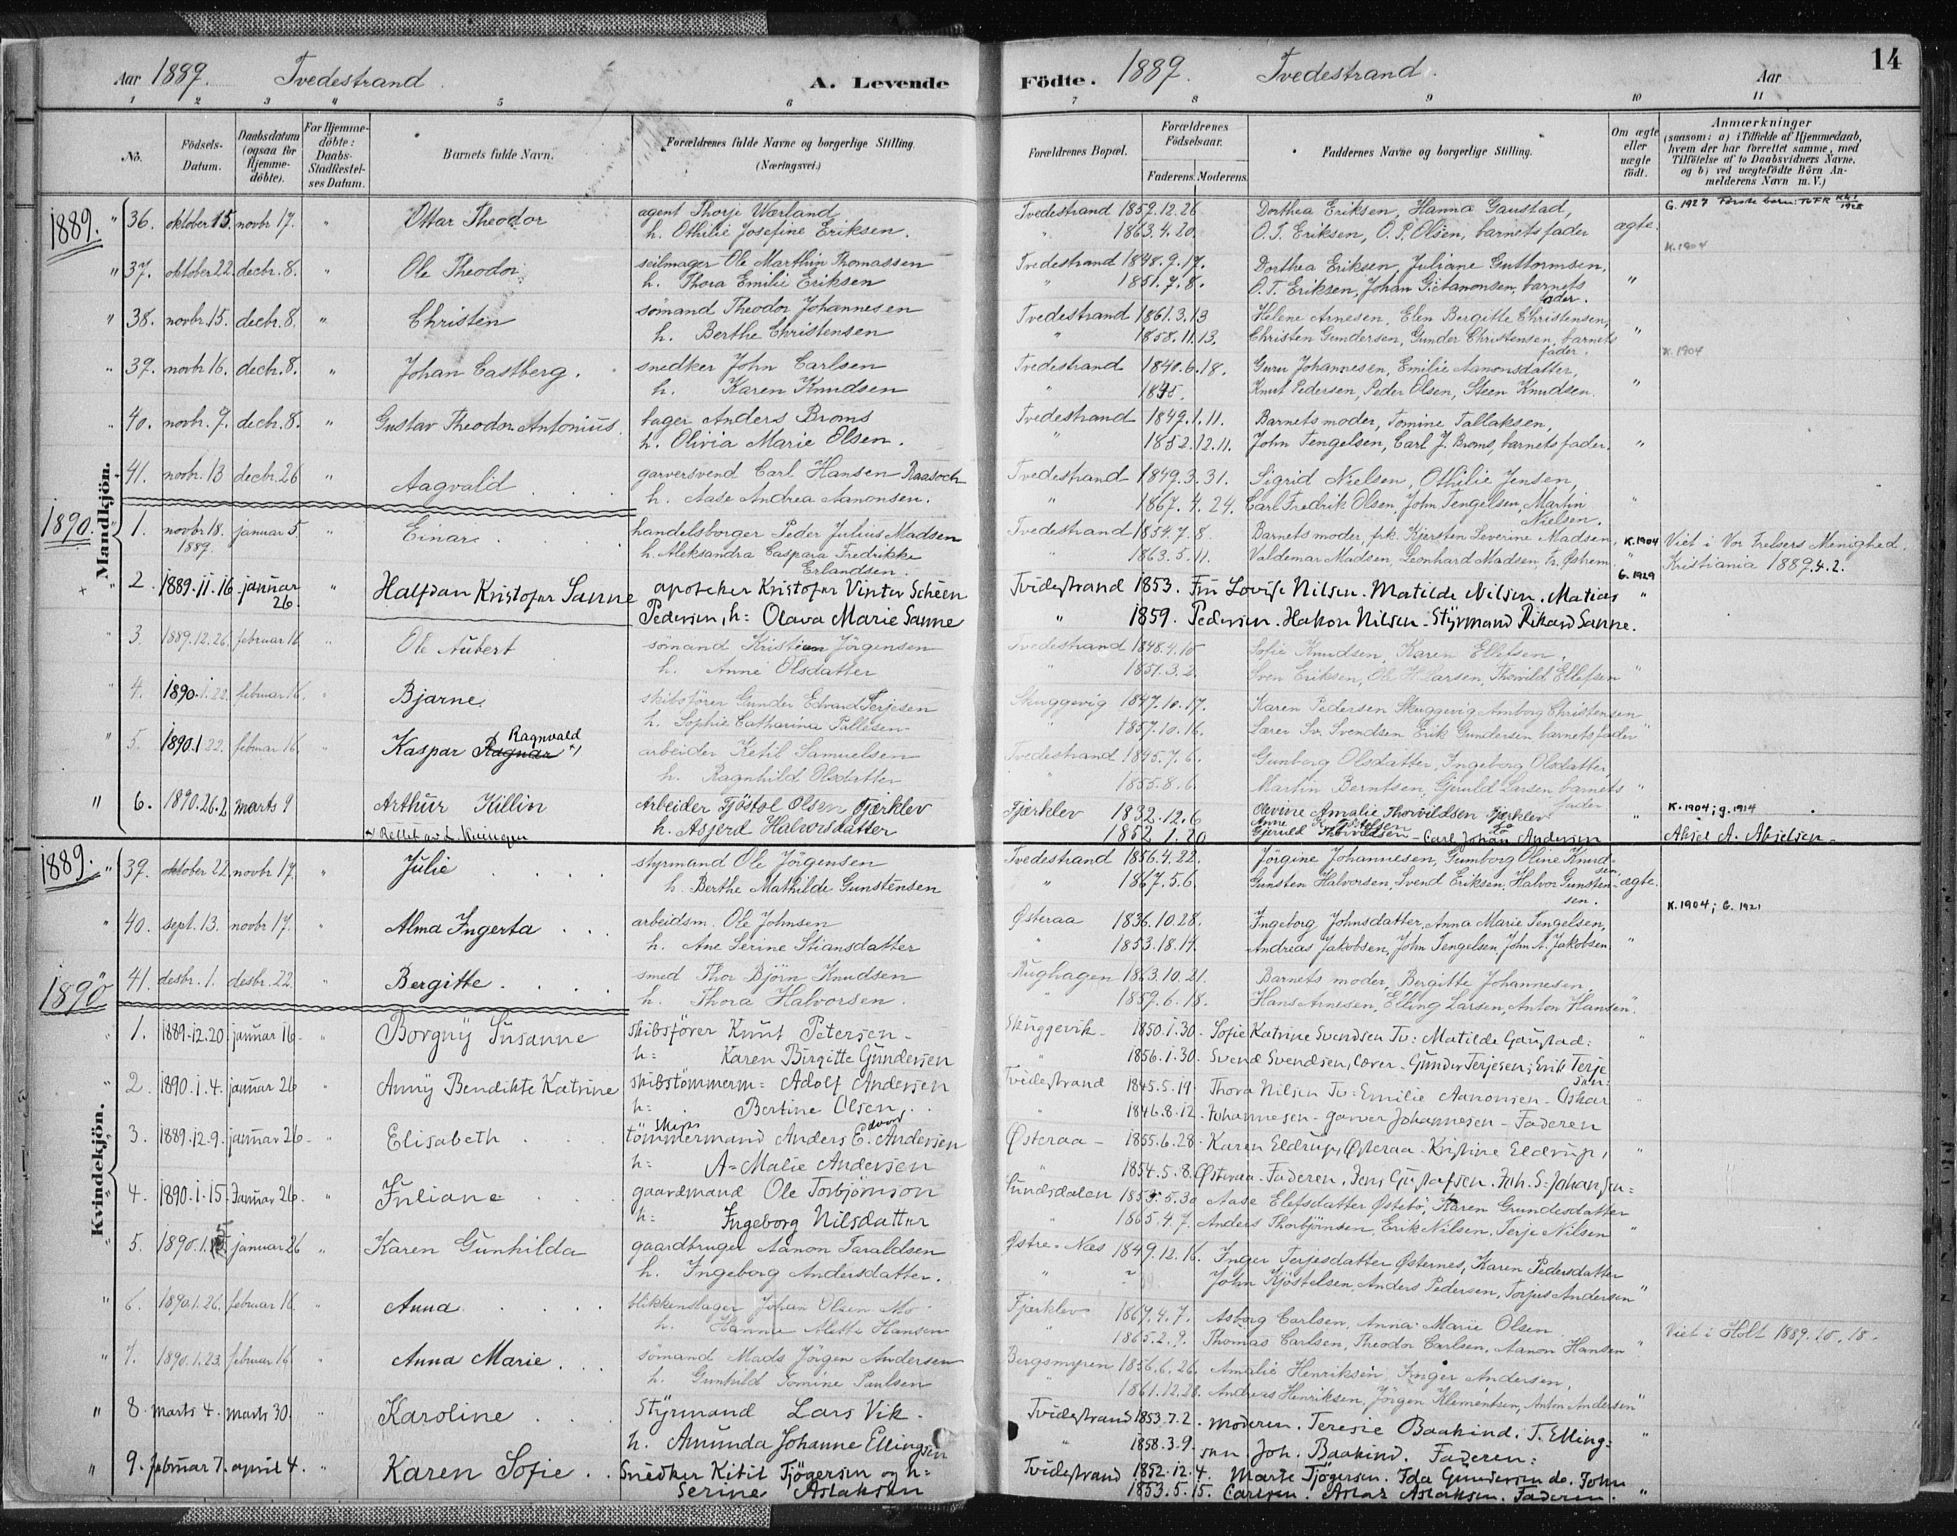 14
Aar 1889. Tvedestrand A. Levende Födte. 1889. Tvedestrand. Aar
1 2 3 4 5 6 7 8 9 10 11
No. Födsels-Datum. Daabsdatum (ogsaa for Hjemmedöbte). For Hjemmedöbte: Daabs-Stadfæstelses Datum. Barnets fulde Navn. Forældrenes fulde Navne og borgerlige Stilling. (Næringsvei.) Forældrenes Bopæl. Forældrenes Födselsaar. Faderens. Moderens. Faddernes Navne og borgerlig Stilling. Om ægte eller uægte födt. Anmærkninger (saasom: a) i Tilfælde af Hjemmedaab, hvem der har forrettet samme, med Tilföielse af to Daabsvidners Navne, og b) ved uægtefödte Börn Anmelderens Navn m. V.)
1889. Mandkjön.
" 36. oktober 15. novbr 17. " Ottar Theodor agent Thorje Wærland Tvedestrand 1859.12.26 Dorthea Eriksen, Hanna Gaustad, ægte. G. 1927
h. Othilie Josefine Eriksen. " 1863.4.20. O. T. Eriksen, O. P. Olsen, barnets fader
" 37. oktober 22. decbr. 8. " Ole Theodor seilmager Ole Marthin Thomassen Tvedestrand 1848.9.17. Dorthea Eriksen, Juliane Guttormsen, " K. 1904
h. Thora Emilie Eriksen " 1851.7.8. O. T. Eriksen, Johan barnets fader.
" 38. novbr. 15. decbr. 8. " Christen sömand Theodor Johannesen Tvedestrand 1861.3.13 Helene Arnesen, Elen Bergitte Christensen, "
h. Berthe Christensen " 1858.11.13. Christen Gundersen, Gunder Christensen, barnets fader.
" 39. novbr 16. decbr. 8. " Johan Castberg. snedker John Carlsen Tvedestrand 1840.6.18. Guru Johannesen, Emilie Aanonsdatter, " K. 1904
h. Karen Knudsen " 1845. Knut Pedersen, Peder Olsen, Steen Knudsen.
" 40. novbr. 9. decbr. 8. " Gustav Theodor Antonius. bager Anders Broms Tvedestrand 1849.1.11. Barnets moder, Tomine Tallaksen, "
h. Olivia Marie Olsen. " 1852.12.11. John Tengelsen, Carl J. Broms, barnets fader.
41. novbr. 13 decbr. 26 " Aagvald garversvend Carl Hansen Raasoch Tvedestrand 1849.3.31. Sigrid Nielsen, Othilie Jensen,
h. Aase Andrea Aanonsen. " 1867.4.24. Carl Fredrik Olsen, John Tengelsen, Martin Nielsen. "
1890.
" 1. novbr 18. 1889. januar 5. " Einar. handelsborger Peder Julius Madsen Tvedestrand 1854.7.8. Barnets moder, frk. Kjersten Severine Madsen, K. 1904 Viet i Vor Frelsers Menighed.
h. Aleksandra Caspara Fredrikke Erlandsen. " 1863.5.11. Valdemar Madsen, Leonhard Madsen, Østrem Kristiania 1889.4.2.
" 2. 1889.11.16 januar 26. " Halfdan Kristofer Sanne apoteker Kristofer Vinter Scheen Tvidestrand 1853. Frü Lovise Nilsen. Matilde Nilsen. Matias " G. 1929
Pedersen, h: Olava Marie Sanne " 1859. Pedersen. Hakon Nilsen. Styrmand Rikard Sanne.
" 3. 1889.12.26. februar 16 Ole Aubert sömand Kristian Jörgensen Tvedestrand 1848.4.10 Sofie Knudsen, Karen Ellefsen,
h. Anne Olsdatter " 1851.3.2. Sven Eriksen, Ole H. Larsen, Thorvild Ellefsen "
" 4. 1890.1.22. februar 16. Bjarne. skibsförer Gunder Edvard Terjesen Skuggevig 1847.10.17. Karen Pedersen Skuggevig, Amborg Christensen
h. Sophie Catharina Pallesen " 1857.10.16. Lærer Sv. Svendsen, Erik Gundersen, barnets fader "
" 5. 1890.1.22. februar 16. Kaspar Ragnar Ragnvald x) arbeider Ketil Samuelsen Tvedestrand 1845.7.6. Gunborg Olsdatter, Ingeborg Olsdatter,
h. Ragnhild Olsdatter " 1855.8.6. Martin Berntsen, Gjeruld Larsen, barnets fader "
" 6. 1890.26.2. marts 9 Arthur Killin Arbeider Tjöstol Olsen Fjerklev Fjerklev 1832.12.6 Olevine Amalie Thorvildsen Fjerklev " K. 1904; g. 1914
h. Asjerd Halvorsdatter 1852.1.20 Gjeruld Thorvildsen - Carl Johan Andersen Aksel A. Akselsen
1889. Kvindekjön.
" 39. oktober 22. novbr 17. Julie styrmand Ole Jörgensen Tvedestrand 1856.4.22. Jörgine Johannesen, Gumborg Oline Knudsen, ægte.
h. Berthe Mathilde Gunstensen " 1867.5.6. Gunsten Halvorsen, Svend Eriksen, Halvor Gunstensen.
" 40. sept. 13. novbr 17. " Alma Ingerta arbeidsm. Ole Johnsen Østeraa 1836.10.28. Ingeborg Johnsdatter, Anna Marie Tengelsen, K. 1904; G. 1921
h. Ane Serine Stiansdatter " 1853.18.14. Andreas Jakobsen, John Tengelsen, John A. Jakobsen "
41. desbr. 1. desbr. 22. Bergitte smed Thor Björn Knudsen Rughagen 1863.10.21. Barnets moder, Bergitte Johannesen,
h. Thora Halvorsen. " 1859.6.18. Hans Arnesen, Elling Larsen, Anton Hansen. "
1890
1. 1889.12.20. januar 16. " Borgny Susanne skibsförer Knut Petersen. Skuggevik 1850.1.30. Sofie Katrine Svendsen Tv: Matilde Gaustad: "
h: Karen Birgitte Gundersen " 1856.1.30. Svend Svendsen, Gunder Terjesen; Erik Terjesen:
" 2. 1890.1.4. januar 26 " Anny Bendikte Katrine skibstömmerm: Adolf Andersen Tvidestrand 1845.5.19 Thora Nilsen Tv: Emilie Aanonsen - Oskar "
h: Bertine Olsen. " 1846.8.12. Johannesen - garver Johannesen - Faderen
" 3. 1889.12.9. januar 26. " Elisabeth skips tömmermand Anders E. Andersen Østeraa - 1855.6.28. Karen Eldrup, Østeraa. Kristine Eldrup, "
h: A: Malie Andersen 1854.5.8. Østeraa. Faderen, Jens Gustafsen. Joh. S. Johansen:
" 4. 1890.1.15. Januar 26. " Juliane gaardmand Ole Torbjörnson Sundsdalen 1855.5.30 Aase Elefsdatter Østebö, Karen Grundesdatter
h: Ingeborg Nilsdatter " 1865.4.7. Anders Thorbjörnsen, Erik Nilsen, Terje Nilsen "
" 5. 1890.1.5 januar 26 " Karen Gunhilda gaardbruger Aanon Taraldsen Østre-Næs 1849.12.16. Inger Terjesdatter Østernes, Karen Pedersdatter
h. Ingeborg Andersdatter. " ? John Kjöstelsen, Anders Pedersen, Torjus Andersen "
" 6. 1890.1.26. februar 16 " Anna blikkenslager Johan Olsen Mo Fjerklev 1869.4.7. Asborg Carlsen, Anna Marie Olsen
h. Hanna Alette Hansen " 1865.2.9. Thomas Carlsen, Theodor Carlsen, Aanon Hansen " Viet i Holt 1889.10.18.
" 7. 1890.1.23. februar 16 Anna Marie sömand Mads Jörgen Andersen Bergsmyren 1856.6.26. Amalie Henriksen, Inger Andersen,
h. Gunhild Tomine Paulsen " 1861.12.28. Andreas Henriksen, Jörgen Klementsen, Anton Andersen "
" 8. marts 4. marts 30. Karoline Styrmand Lars Vik. Tvidestrand 1853.7.2. moderen. Teresie Baakind. T. Elling- "
h. Amunda Johanne Ellingsen " 1858.3.9. sen. Joh. Baakind. Faderen:
" 9. februar 7. april 4. " Karen Sofie Snedker Kitil Tjögersen og h: Tvidestrand 1852.12.4. Marte Tjögersen. Ida Gundersen do. John
Serine Aslaksen 1853.5.15. Carlsen. Aslak Aslaksen. Faderen. "